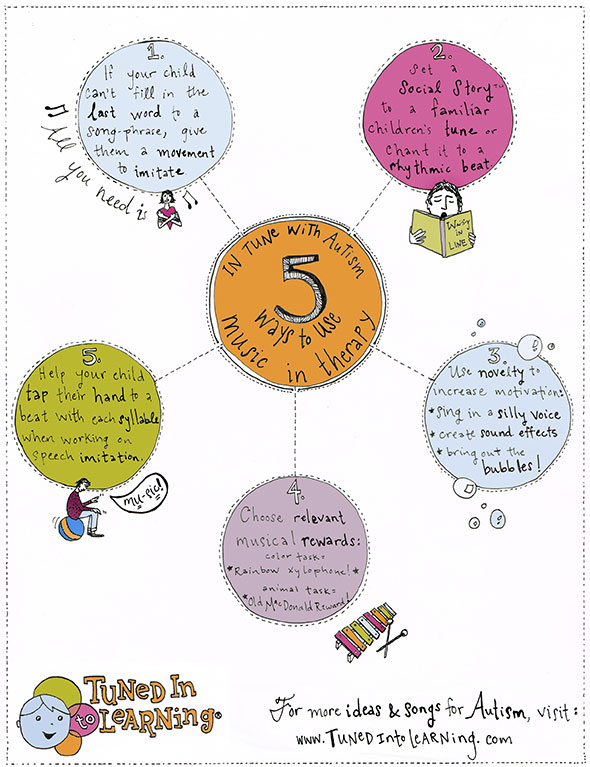 IN TUNE WITH AUTISM
5
WAYS to USE
music in therapy
1.
If your child
can't fill in the
last word to a
song-phrase, give
them a movement
to imitate
All you need is
2.
Set a
Social Story™
to a familiar
children's tune or
chant it to a
rhythmic beat.
Waiting
in
LINE
3.
Use novelty to
increase motivation:
*sing in a silly voice
*create sound effects
*bring out the
bubbles!
4.
Choose relevant
musical rewards:
color task=
*Rainbow xylophone!*
animal task=
*Old MacDonald Reward!
5.
Help your child
tap their hand to a
beat with each syllable
when working on
speech imitation.
mu-sic!
TUNED IN
to LEARNING®
For more ideas & songs for Autism, visit:
www.TUNEDINtoLEARNING.com